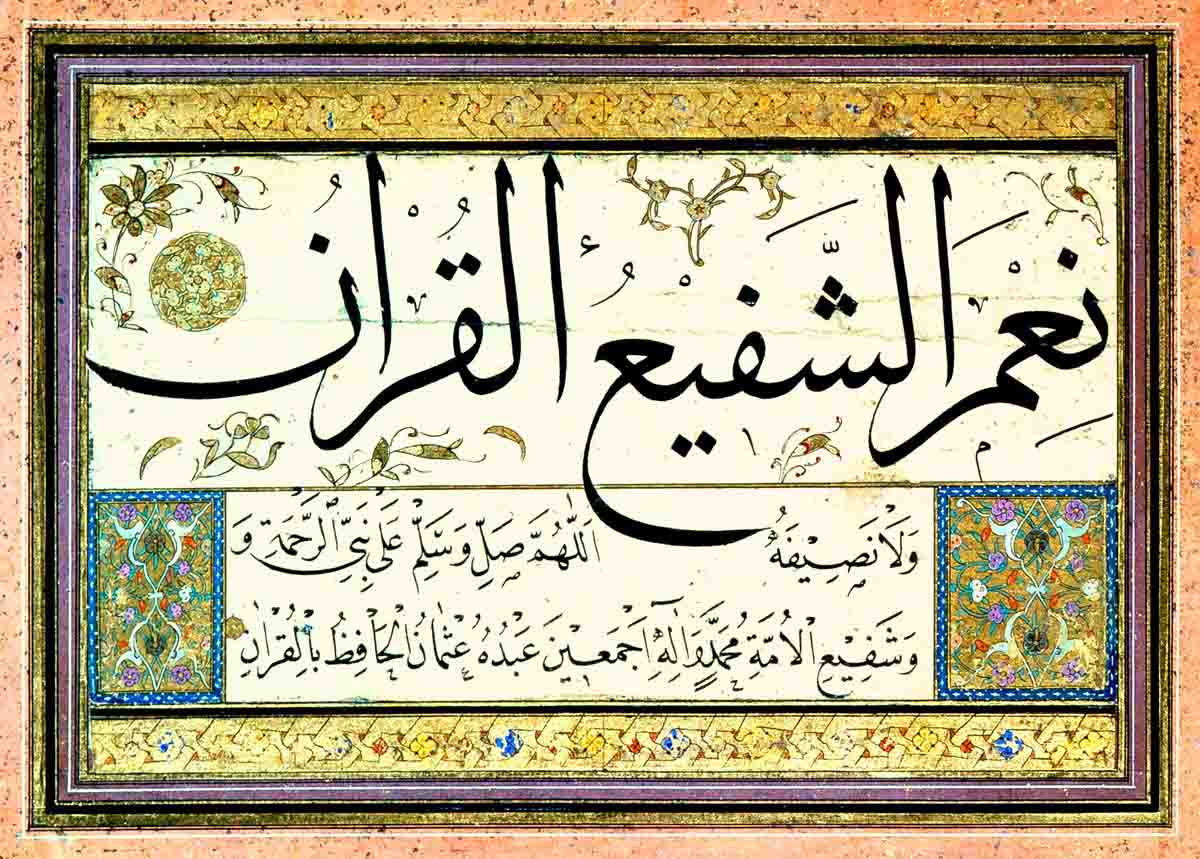 نِعْمَ الشَّفِيعُ الْقُرْاٰنُ
وَلَا نَصِيفَهُ اَللّٰهُمَّ صَلِّ وَسَلِّمْ عَلٰى نَبِيِّ الرَّحْمَةِ وَ
وَشَفِيعِ الْاُمَّةِ مُحَمَّدٍ وَاٰلِهِ اَجْمَعِينَ عَبْدُهُ عُثْمَانُ الْحَافِظُ بِالْقُرْاٰنِ